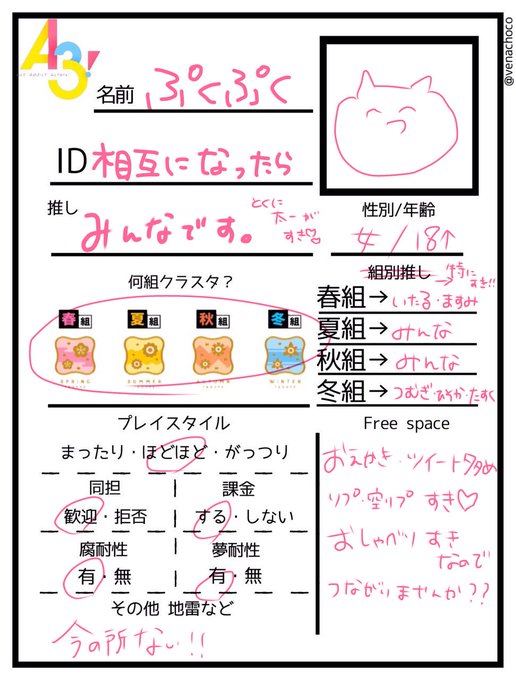 @venachoco
A3!
名前 ぷくぷく
ID 相互になったら
推し みんなです。とくに太一がすき♡
性別/年齢
女/18↑
何組クラスタ?
春組 夏組 秋組 冬組
SPRING SUMMER AUTUMN WINTER
組別推し →特にすき!!
春組→いたる・ますみ
夏組→みんな
秋組→みんな
冬組→つむぎ・ひそか・たすく
プレイスタイル
まったり・ほどほど・がっつり
同担 課金
歓迎・拒否 する・しない
腐耐性 夢耐性
有・無 有・無
その他 地雷など
今の所ない!!
Free space
おえかき・ツイート多め
リプ・空リプ すき♡
おしゃべりすき
なので
つながりませんか??